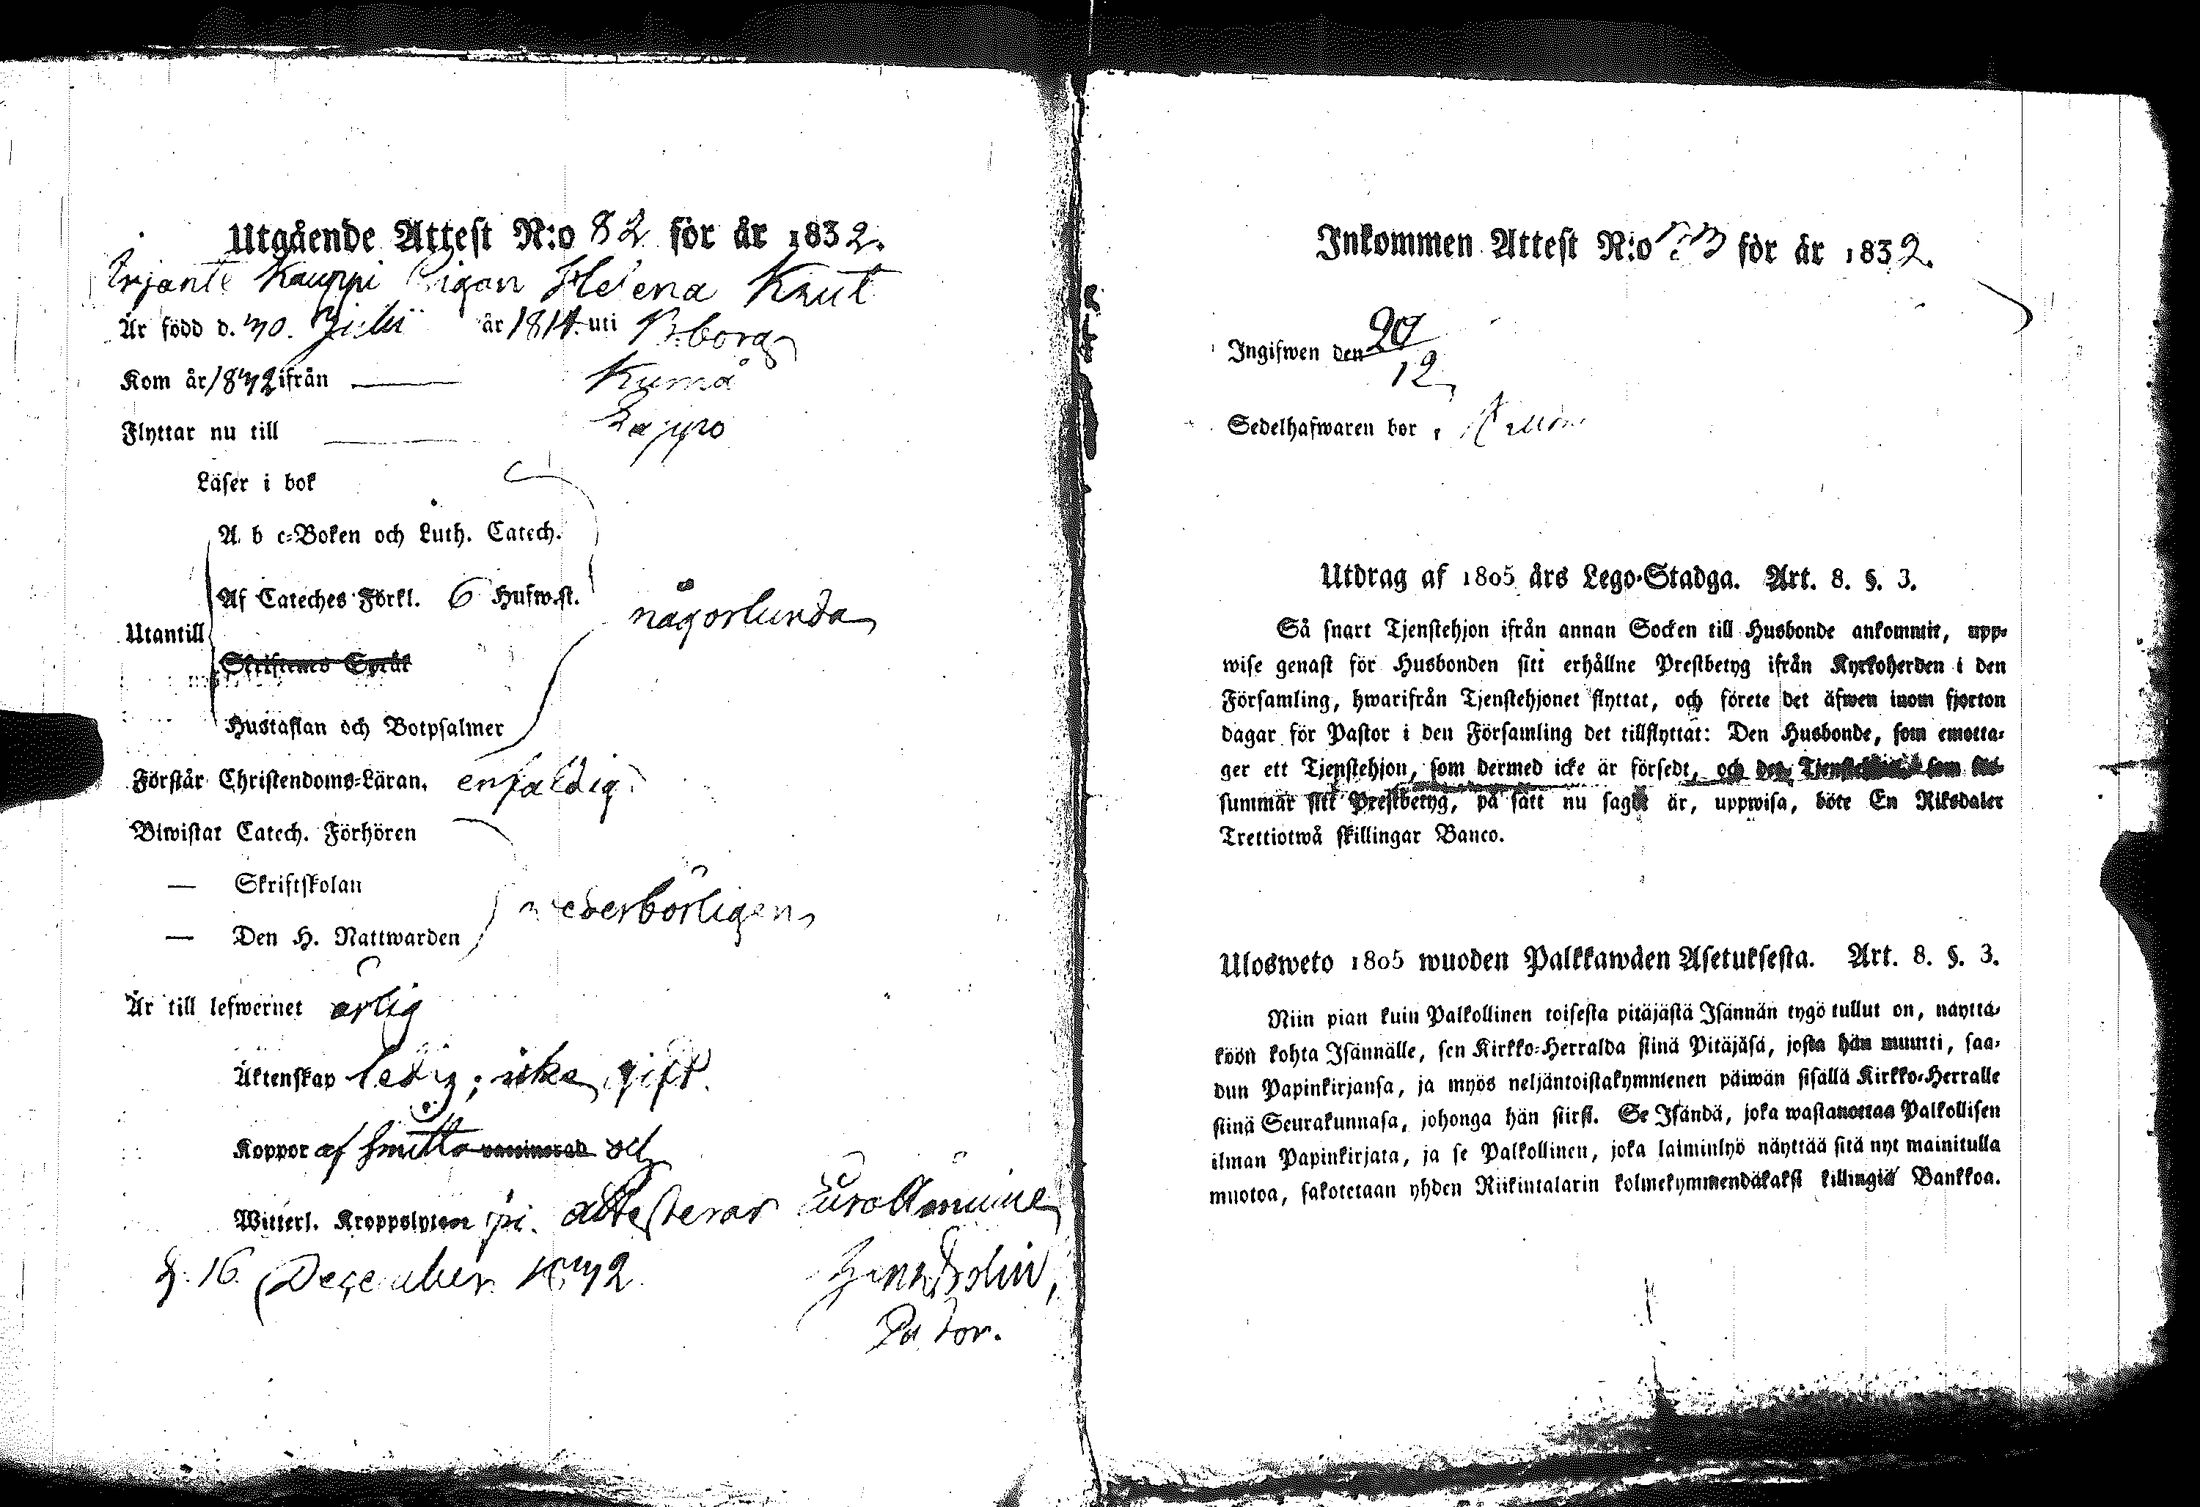 Utgående Attest N:o 82 för år 1832.
Kauppi Pigan Helena Knut
Är född d. 30. Julii år 1814. uti B:borg
Kom år 1832 ifrån ——— Kumå
Flyttar nu till ——— Lappo
Läser i bok
A b c-Boken och Luth. Catech.
Af Cateches Förkl. 6 Hufw.st.
någorlunda
Utantill
Skriftenes Språk
Hustaflan och Botpsalmer
Förstår Christendoms-Läran. enfaldig:
Biwistat Catech. Förhören
— Skriftskolan
wederbörligen
— Den H. Nattwarden
Är till lefwernet ärlig
Äktenskap ledig; icke gift.
Koppor af smitta vaccinerad och
Witterl. Kroppslyten attesterar Euraåminne
d. 16 December 1832
Pastor.
Inkommen Attest N:o för år 1832.
Ingifwen den 29/12
Sedelhafwaren bor i
Utdrag af 1805 års Lego-Stadga. Art. 8. §. 3.
Så snart Tjenstehjon ifrån annan Socken till Husbonde ankommit, upp-
wise genast för Husbonden sitt erhållne Prestbetyg ifrån Kyrkoherden i den
Församling, hwarifrån Tjenstehjonet flyttat, och förete det äfwen inom fjorton
dagar för Pastor i den Församling det tillflyttat: Den Husbonde, som emotta-
ger ett Tjenstehjon, som dermed icke är försedt, och det Tjenstehjon, som för-
summar sitt Prestbetyg, på sätt nu sagdt är, uppwisa, böte En Riksdaler
Trettiotwå skillingar Banco.
Ulosweto 1805 wuoden Palkkawäen Asetuksesta. Art. 8. §. 3.
Niin pian kuin Palkollinen toisesta pitäjästä Isännän tygö tullut on, näyttä-
köön kohta Isännälle, sen Kirkko-Herralda siinä Pitäjäsä, josta hän muutti, saa-
dun Papinkirjansa, ja myös neljäntoistakymmenen päiwän sisällä Kirkko-Herralle
siinä Seurakunnasa, johonga hän siirsi. Se Isändä, joka wastanottaa Palkollisen
ilman Papinkirjata, ja se Palkollinen, joka laiminlyö näyttää sitä nyt mainitulla
muotoa, sakotetaan yhden Riikintalarin kolmekymmendäkaksi killingiä Bankkoa.